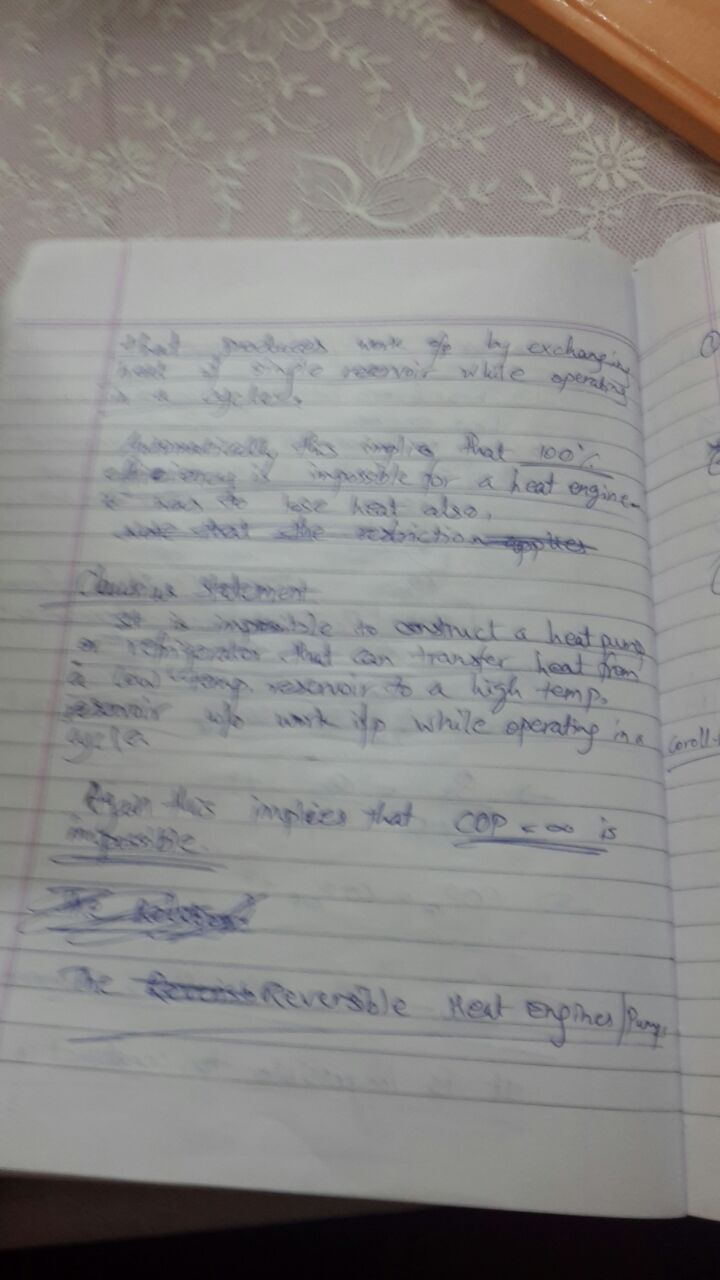 that produces work o/p by exchanging
heat of single reservoir while operating
in a cycle.
Automatically this implies that 100%
efficiency is impossible for a heat engine.
it has to lose heat also.
note that the restriction applies
Clausius Statement
It is impossible to construct a heat pump
or refrigerator that can transfer heat from
a low temp. reservoir to a high temp.
reservoir w/o work i/p while operating in a
cycle.
Again this implies that COP = ∞ is
impossible.
The Reversible Heat Engines/Pumps
Coroll